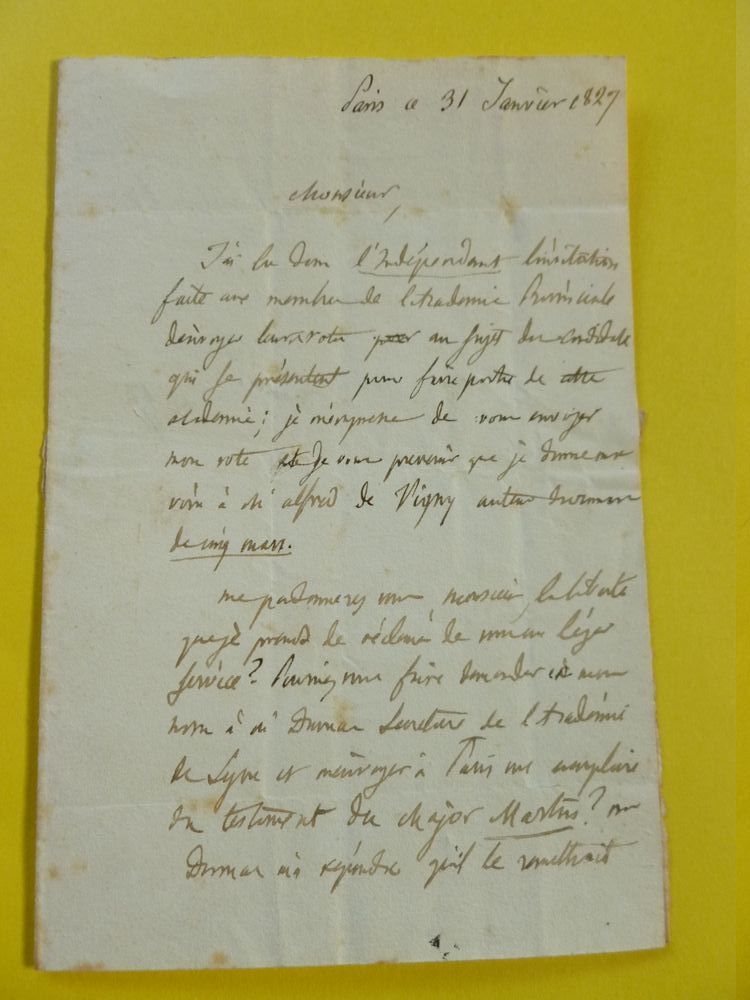 Paris ce 31 Janvier 1827
Monsieur,
J'ai lu dans l'Indépendant l'invitation
faite aux membres de l'Académie Provinciale
d'envoyer leurs votes au sujet des candidats
qui se présentent pour faire partie de cette
académie; je m'empresse de vous envoyer
mon vote et de vous prevenir que je donne ma
voix à Mr alfred de Vigny auteur du roman
de cinq mars.
me pardonnerez vous monsieur la liberté
que je prends de réclamer de vous un léger
service? Pourriez vous faire demander en mon
nom à Mr Dumas Secretaire de l'Académie
de Lyon et m'envoyer à Paris un exemplaire
du testament du Major Martin? mr
Dumas m'a répondu qu'il le remettrait